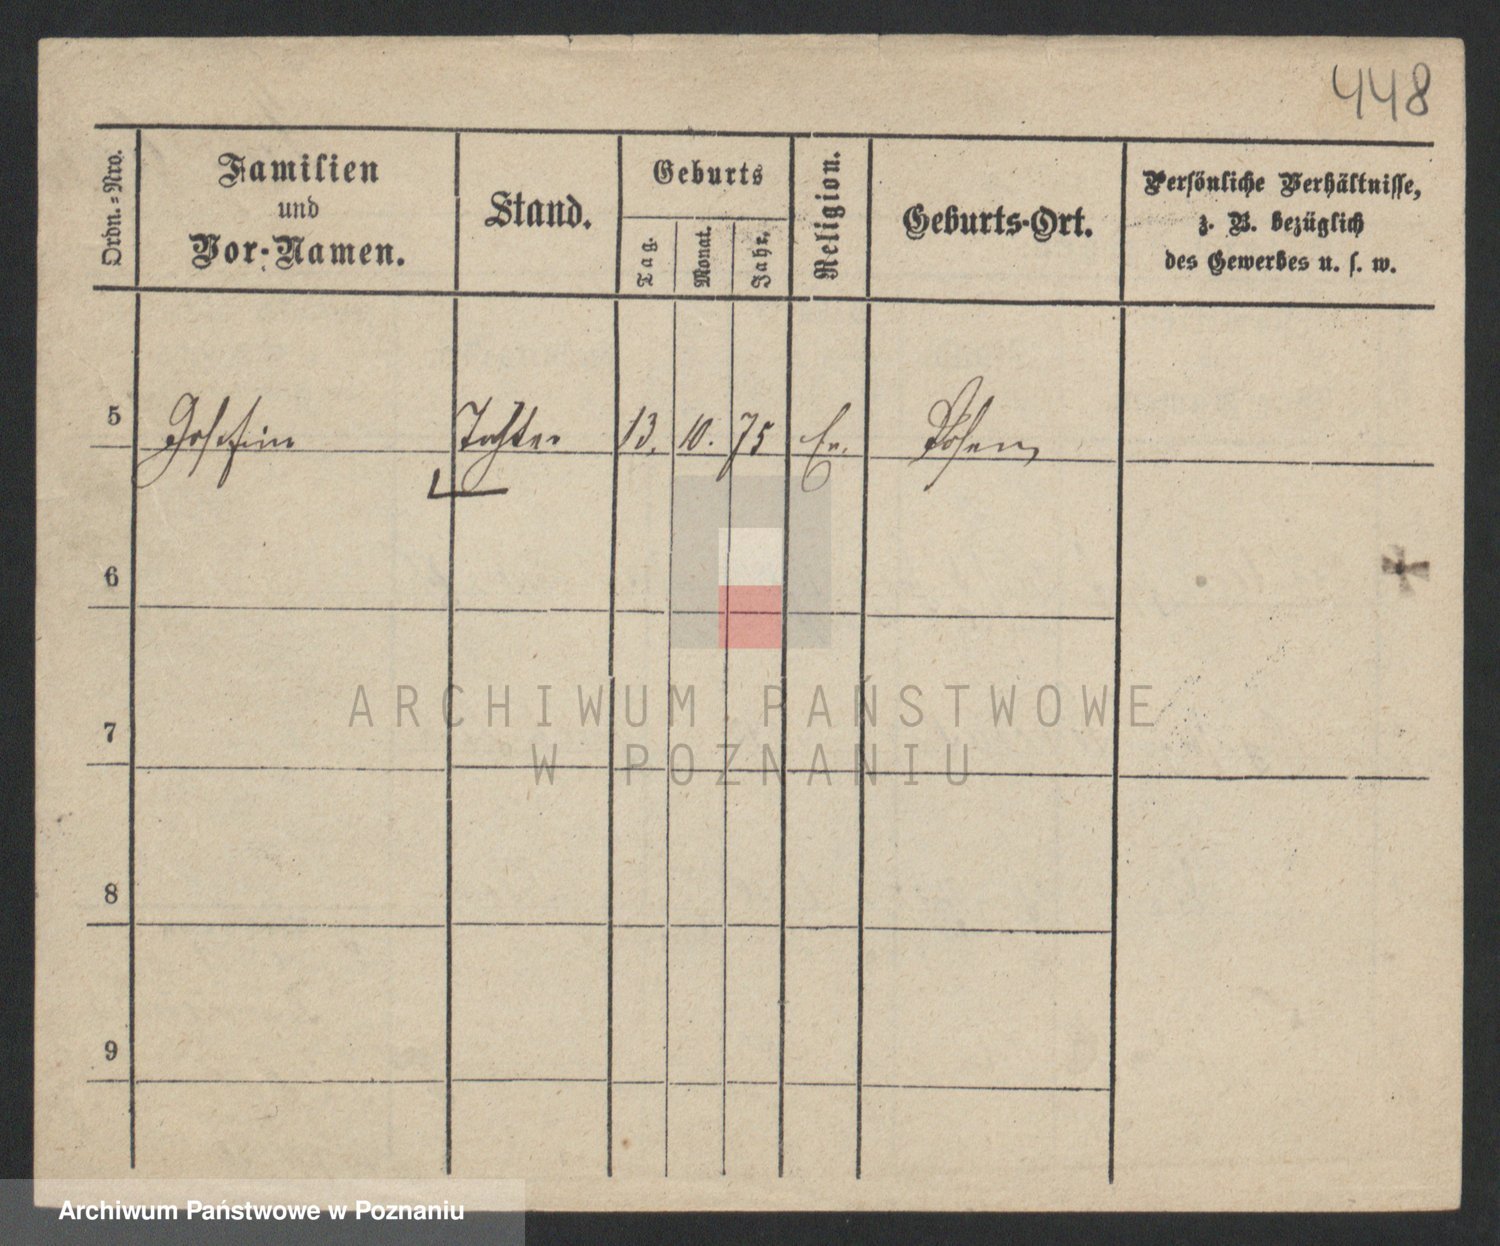 448
Ordn.-Nro.
Familien
und
Vor-Namen.
Stand.
Geburts
Tag.
Monat.
Jahr.
Religion.
Geburts-Ort.
Persönliche Verhältnisse,
z. B. bezüglich
des Gewerbes u. s. w.
5 Josefine Tochter 13. 10. 75 Posen
6
7
8
9
ARCHIWUM PAŃSTWOWE
W POZNANIU
Archiwum Państwowe w Poznaniu